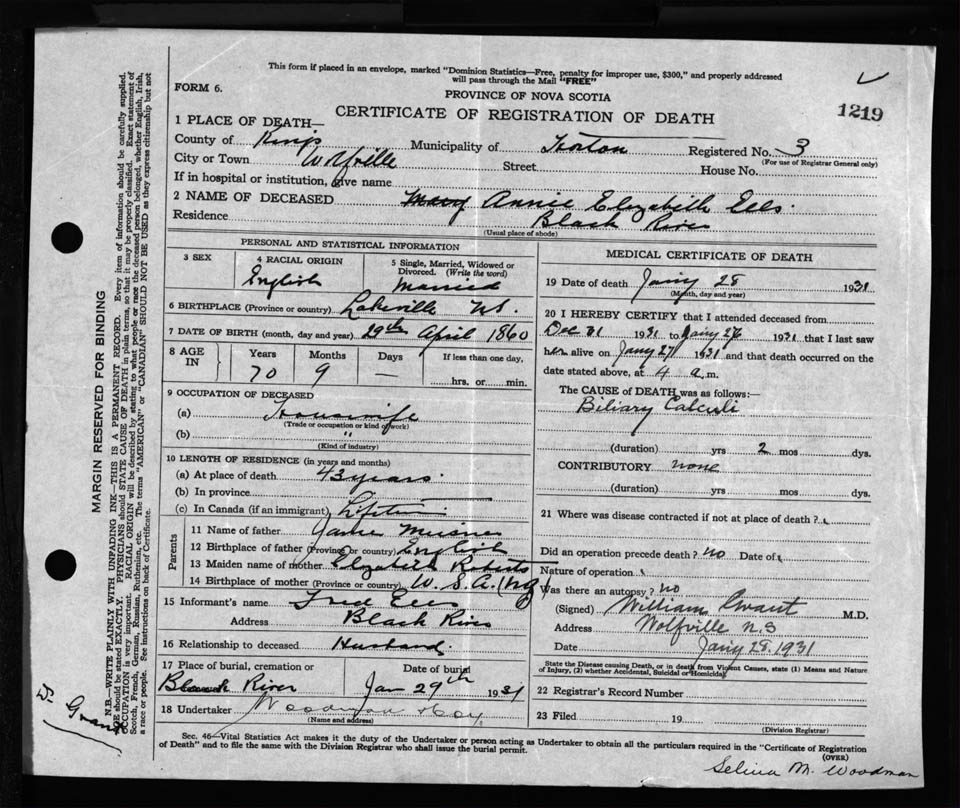 This form if placed in an envelope, marked "Dominion Statistics—Free, penalty for improper use, $300," and properly addressed
will pass through the Mail "FREE"
FORM 6.
PROVINCE OF NOVA SCOTIA
1219
CERTIFICATE OF REGISTRATION OF DEATH
1 PLACE OF DEATH—
County of Kings Municipality of Horton Registered No. 3
(For use of Registrar General only)
City or Town Wolfville Street House No.
If in hospital or institution, give name
2 NAME OF DECEASED Mary Annie Elizabeth Eels.
Residence Black River
(Usual place of abode)
PERSONAL AND STATISTICAL INFORMATION
3 SEX
4 RACIAL ORIGIN
English
5 Single, Married, Widowed or
Divorced. (Write the word)
Married
6 BIRTHPLACE (Province or country) Lakeville N.S.
7 DATE OF BIRTH (month, day and year) 29th April 1860
8 AGE
IN
Years Months Days If less than one day,
70 9 —
hrs. or min.
9 OCCUPATION OF DECEASED
(a) Housewife
(Trade or occupation or kind of work)
(b) "
(Kind of industry)
10 LENGTH OF RESIDENCE (in years and months)
(a) At place of death 43 years
(b) In province "
(c) In Canada (if an immigrant) Lifetime
Parents
11 Name of father
12 Birthplace of father (Province or country) English
13 Maiden name of mother Elizabeth Roberts
14 Birthplace of mother (Province or country) U.S.A.
15 Informant's name Fred Eels
Address Black River
16 Relationship to deceased Husband
17 Place of burial, cremation or
Date of burial
Black River Jan 29th 1931
18 Undertaker Woodman & Co.
(Name and address)
MEDICAL CERTIFICATE OF DEATH
19 Date of death Jany 28 1931
(Month, day and year)
20 I HEREBY CERTIFY that I attended deceased from
Dec 1931 to Jany 1931 that I last saw
her alive on Jany 27 1931 and that death occurred on
date stated above, at 4 a.m.
The CAUSE of DEATH was as follows:—
Biliary Calculi
(duration) yrs 2 mos dys.
CONTRIBUTORY none
(duration) yrs mos dys.
21 Where was disease contracted if not at place of death?
Did an operation precede death? no Date of
Nature of operation
Was there an autopsy? no
(Signed) William M.D.
Address Wolfville N.S
Date Jany 28.1931
State the Disease causing Death, or in death from Violent Causes, state (1) Means and Nature
of Injury, (2) whether Accidental, Suicidal or Homicidal.
22 Registrar's Record Number
23 Filed 19
(Division Registrar)
Sec. 46—Vital Statistics Act makes it the duty of the Undertaker or person acting as Undertaker to obtain all the particulars required in the "Certificate of Registration
of Death" and to file the same with the Division Registrar who shall issue the burial permit.
(OVER)
Selina M. Woodman
MARGIN RESERVED FOR BINDING
N.B.—WRITE PLAINLY WITH UNFADING INK—THIS IS A PERMANENT RECORD. Every item of information should be carefully supplied.
AGE should be stated EXACTLY. PHYSICIANS should STATE CAUSE OF DEATH in plain terms, so that it may be properly classified. Exact statement of
OCCUPATION is very important. RACIAL ORIGIN will be described by stating to what people or race the deceased person belonged, whether English, Irish,
Scotch, French, German, Russian, Ruthenian, etc. The terms "AMERICAN" or "CANADIAN" SHOULD NOT BE USED as they express citizenship but not
a race or people. See instructions on back of Certificate.